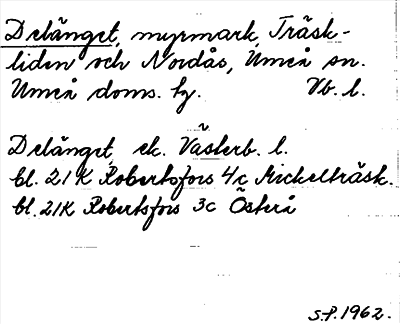 Delänget, myrmark, Träsk-
liden och Nordås, Umeå sn.
Umeå doms. hg. Vb. l.
Delänget, ek. Västerb. l.
bl. 21K Robertsfors 4c Mickelträsk.
bl. 21K Robertsfors 3c Österå
S.P. 1962.